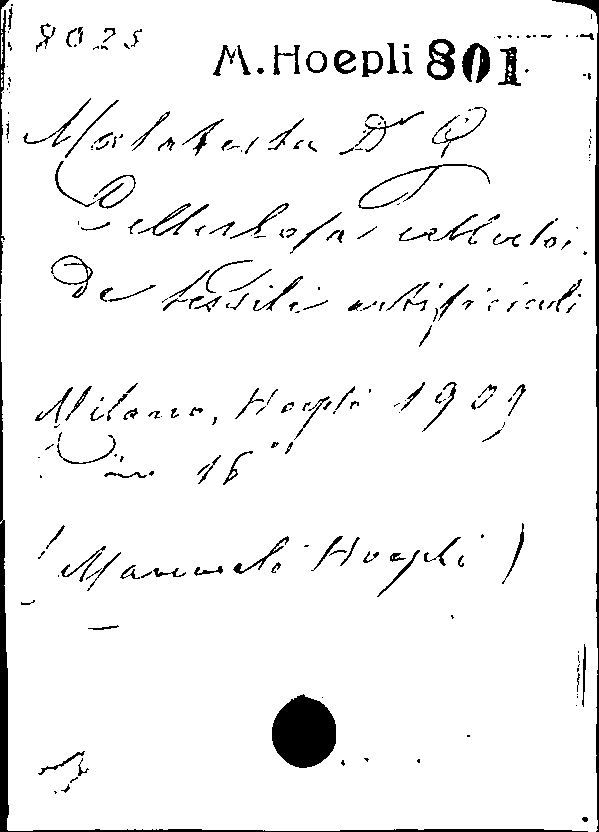 8025
M. Hoepli 801
Malatesta Dr G
Cellulosa, celluloi
de tessili artificiali
Milano, Hoepli 1909
in 16°
(Manuali Hoepli)